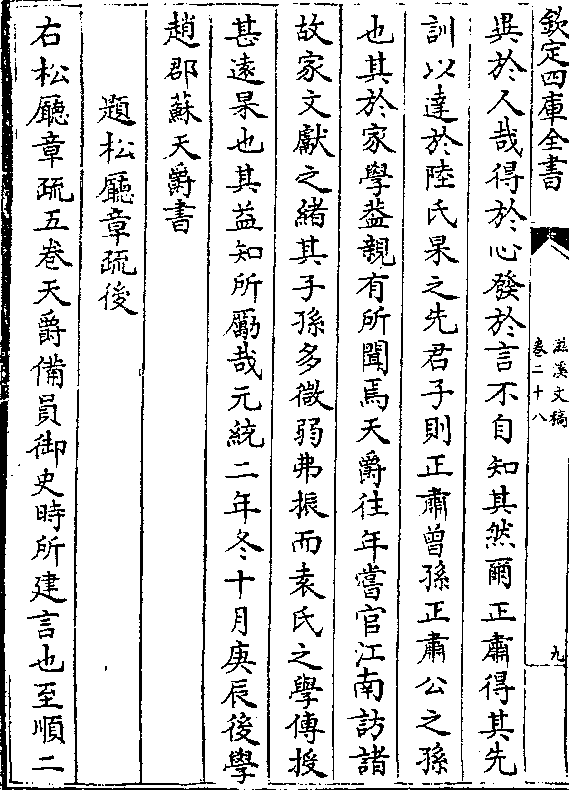 欽定四庫全書
滋溪文稿
卷二十八
九
異於人哉得於心發於言不自知其然爾正肅得其先
訓以達於陸氏杲之先君子則正肅曾孫正肅公之孫
也其於家學葢親有所聞焉天爵往年嘗官江南訪諸
故家文獻之緒其子孫多微弱弗振而袁氏之學傳授
甚遠杲也其益知所勵哉元統二年冬十月庚辰後學
趙郡蘇天爵書
題松廳章疏後
右松廳章疏五卷天爵備員御史時所建言也至順二